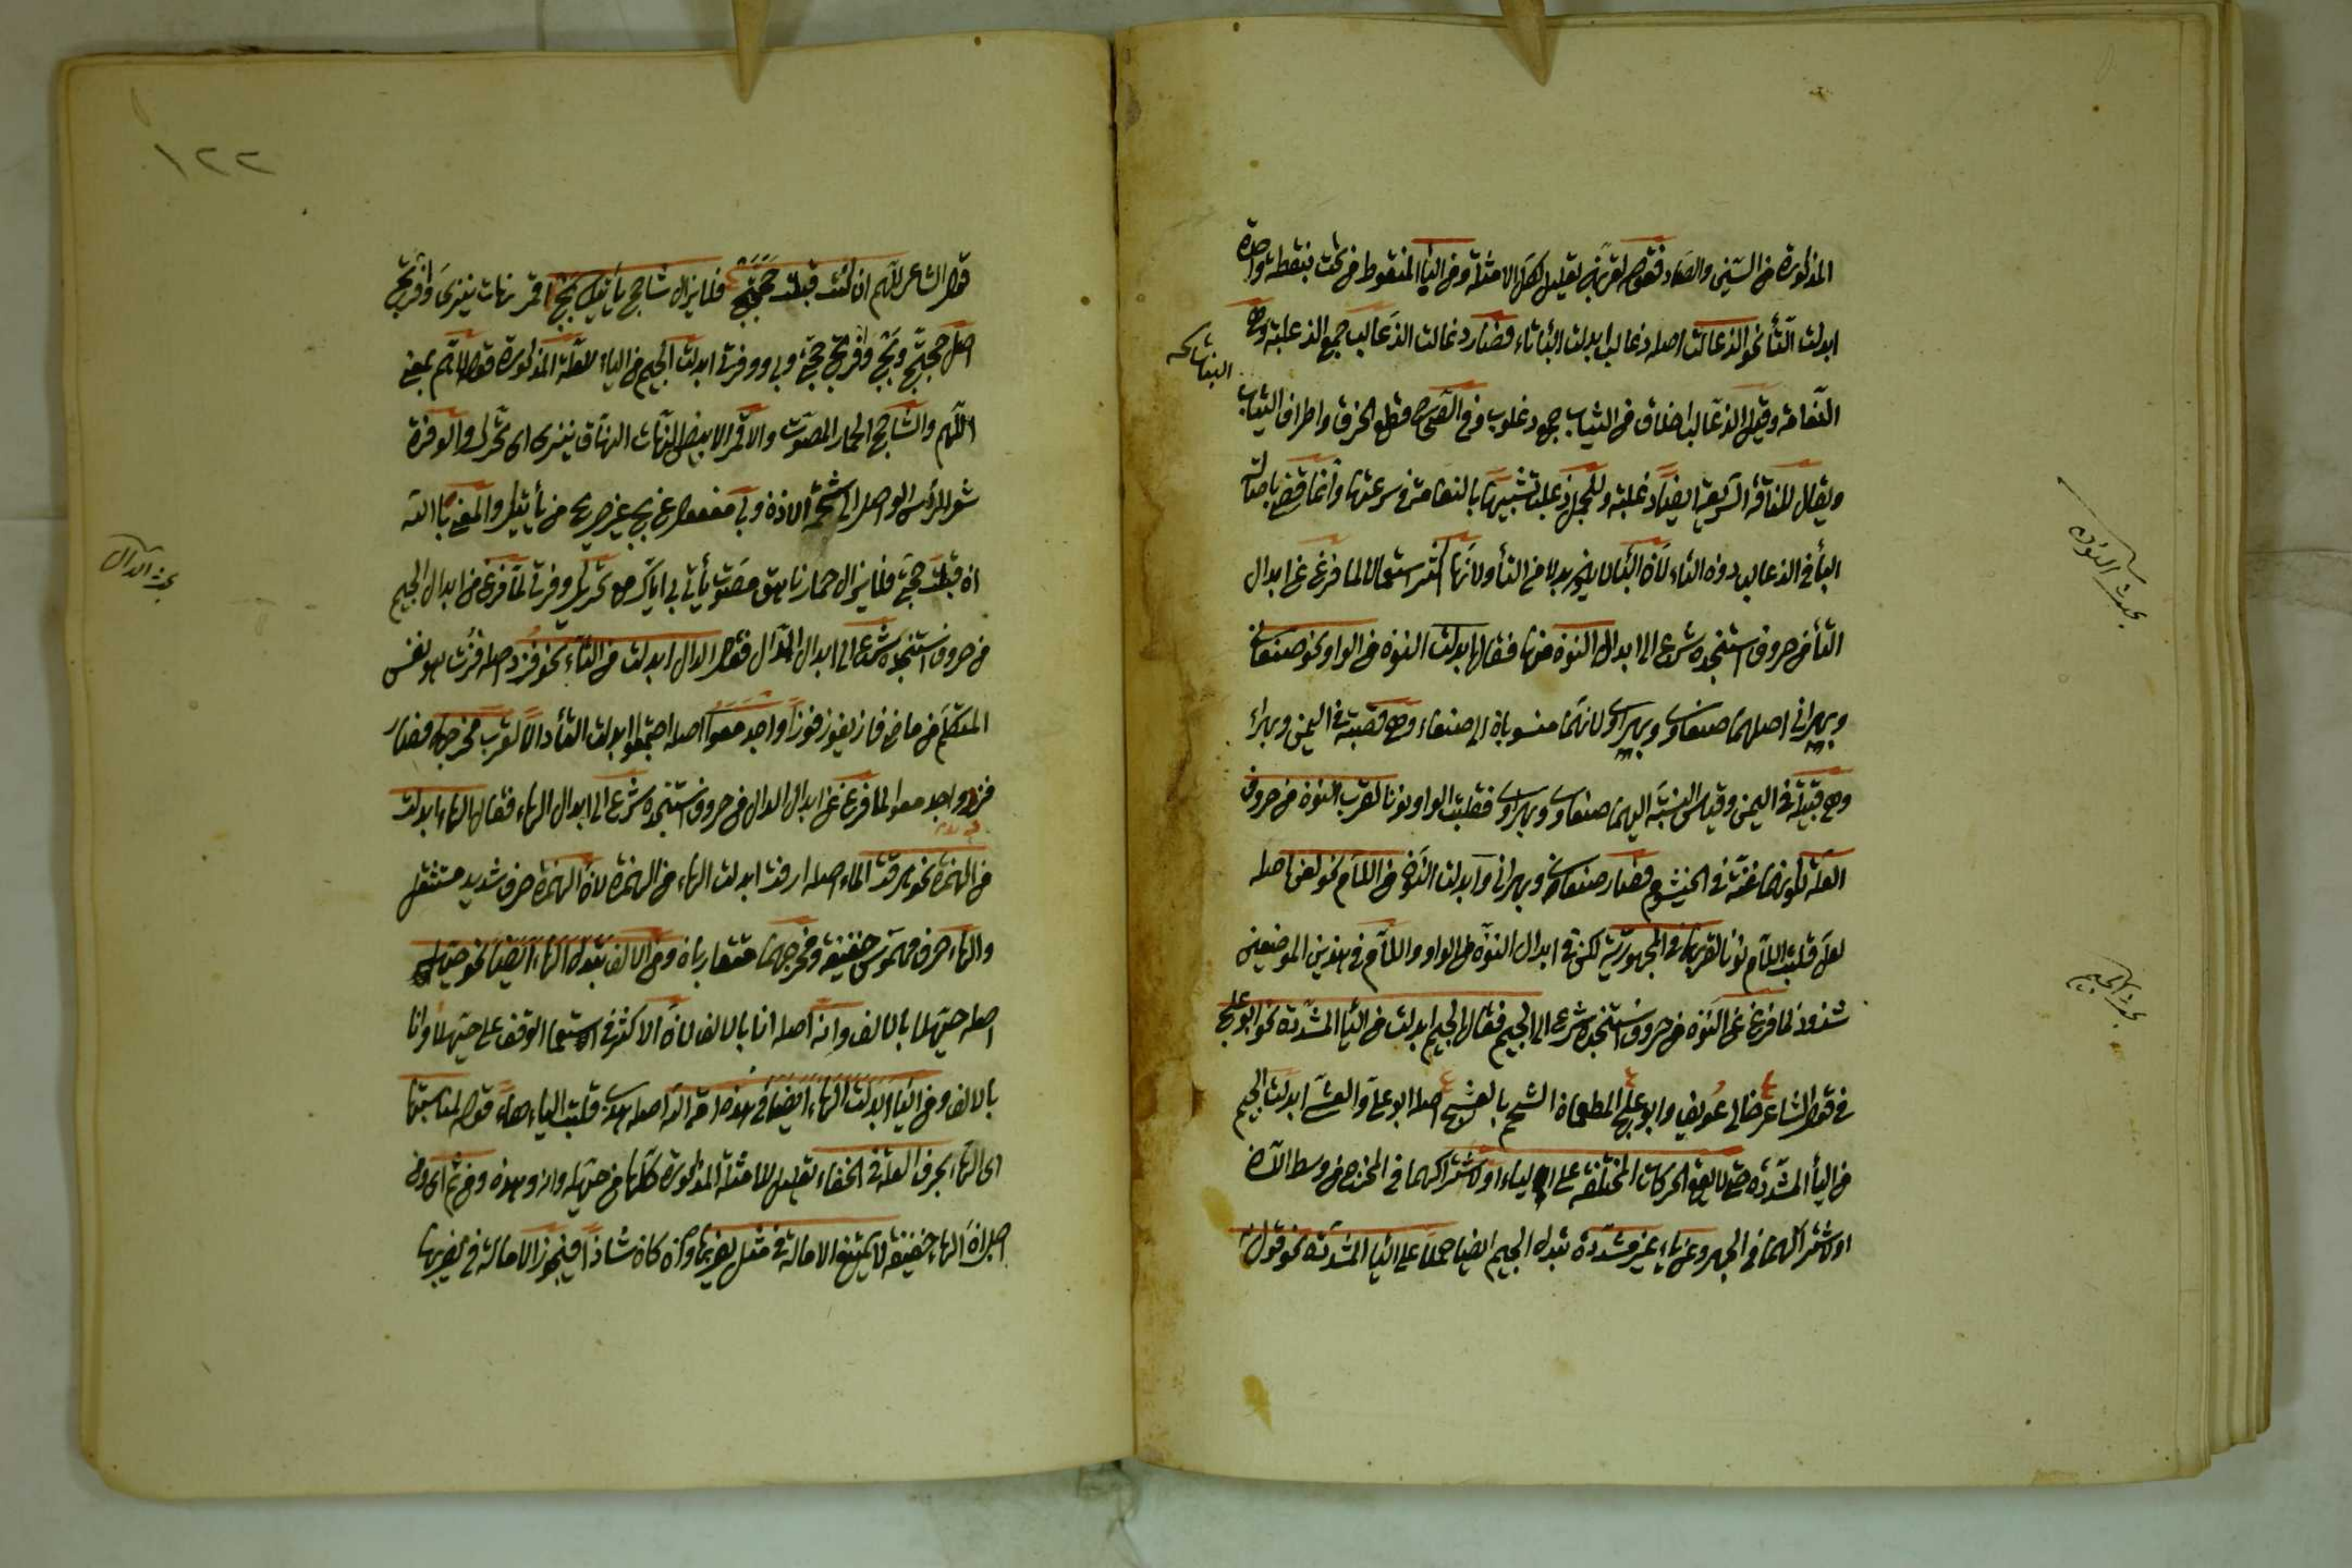 المذكورة من السين والصاد فقوله لقربه تعليل لهذه الامثلة ومن الباء المنقوط من تحت بنقطة واحدة
ابدلت التاء نحو الذعالت اصله ذعالب ابدلت الباء تاء فصار ذعالت الذعالب جمع الذعلبة وهى
النعامة وقيل الذعالب اخلاق من الثياب جمع ذعلوب وفى الصحاح قطع الخرق واطراف الثياب
ويقال للناقة السريعة ايضا ذعلبة وللجمل ذعلب تشبيها بالنعامة فى سرعتها وانما
الباء فى الذعالب دون التاء لان الباء لا بدلا من التاء ولانها اكثر استعمالا لما فرغ عن ابدال
التاء من حروف استنجده شرع الى ابدال النون منها فقال ابدلت النون من الواو نحو صنعانى
وبهرانى اصلهما صنعاوى وبهراوى لانهما منسوبان الى صنعاء وهى قصبة فى اليمن وبهراء
وهى قبيلة فى اليمن وقياس النسبة اليهما صنعاوى وبهراوى فقلبت الواو نونا لقرب النون من حروف
العلة لكونها غنة فى الخيشوم فصار صنعانى وبهرانى وابدلت النون من اللام نحو لعن اصله
لعل قلبت اللام نونا لقربها فى المجهورية لكن فى ابدال النون من الواو واللام فى هذين الموضعين
شذوذ لما فرغ عن النون من حروف استنجده شرع الى الجيم فقال الجيم ابدلت من الياء المشددة نحو ابو علج
فى قول الشاعر خالى عويف وابو علج المطعمان الشحم بالعشج اصله ابو على والعشى ابدلت الجيم
من الياء المشددة حتى لا يقع الحركات المختلفة على الياء او لاشتراكهما فى المخرج من وسط اللسان
او لاشتراكهما فى الجهر وعن ياء غير مشددة تبدل الجيم ايضا حملا على الياء المشددة نحو قول
بحث النون
بحث الجيم
١٢٢
قول الشاعر لاهم ان كنت قبلت حجتج فلا يزال شاحج يأتيك بج اقمر نهات ينزى وفرتج
اصل حجتج وبج وفرتج حجتى وبى ووفرتى ابدلت الجيم من الياء للعلة المذكورة قوله لاهم بمعنى
اللهم والشاحج الحمار المصوت والاقمر الابيض النهات النهاق ينزى اى تحرك والوفرة
شعر الرأس الواصل الى شحمة الاذن وبى مفعول غير صريح من يأتيك والمعنى يا الله
ان قبلت حجتى فلا يزال حمار ناهق مصوت يأتى بى اياك مع تحريك وفرتى لما فرغ من ابدال الجيم
من حروف استنجده شرع الى ابدال الدال فقال الدال ابدلت من التاء نحو فزد اصله فزت هو نفس
المتكلم من ماضى فاز يفوز فوزا واجدمعوا اصله اجتمعوا ابدلت التاء دالا لقرب مخرجهما فصار
فزد واجدمعوا لما فرغ عن ابدال الدال من حروف استنجده شرع الى ابدال الهاء فقال الهاء ابدلت
من الهمزة نحو هرقت الماء اصله ارقت ابدلت الهاء من الهمزة لان الهمزة حرف شديد مستثقل
والهاء حرف مهموس خفيفة ومخرجهما متقاربان ومن الالف تبدل الهاء ايضا نحو حيهله
اصله حيهلا بالالف وانه اصله انا بالالف لان الاكثر فى استعمال الوقف على حيهلا وانا
بالالف ومن الياء ابدلت الهاء ايضا فى هذه امة الله اصله هذى قلبت الياء هاء قوله لمناسبتها
اى الهاء بحرف العلة فى الخفاء تعليل للامثلة المذكورة كلها من حيهله وانه وهذه ومن ثم اى ومن
اجل ان الهاء خفيفة لا يمتنع الامالة فى مثل يضربها وان كان شاذا فيجوز الامالة فى يضربها
بحث الدال